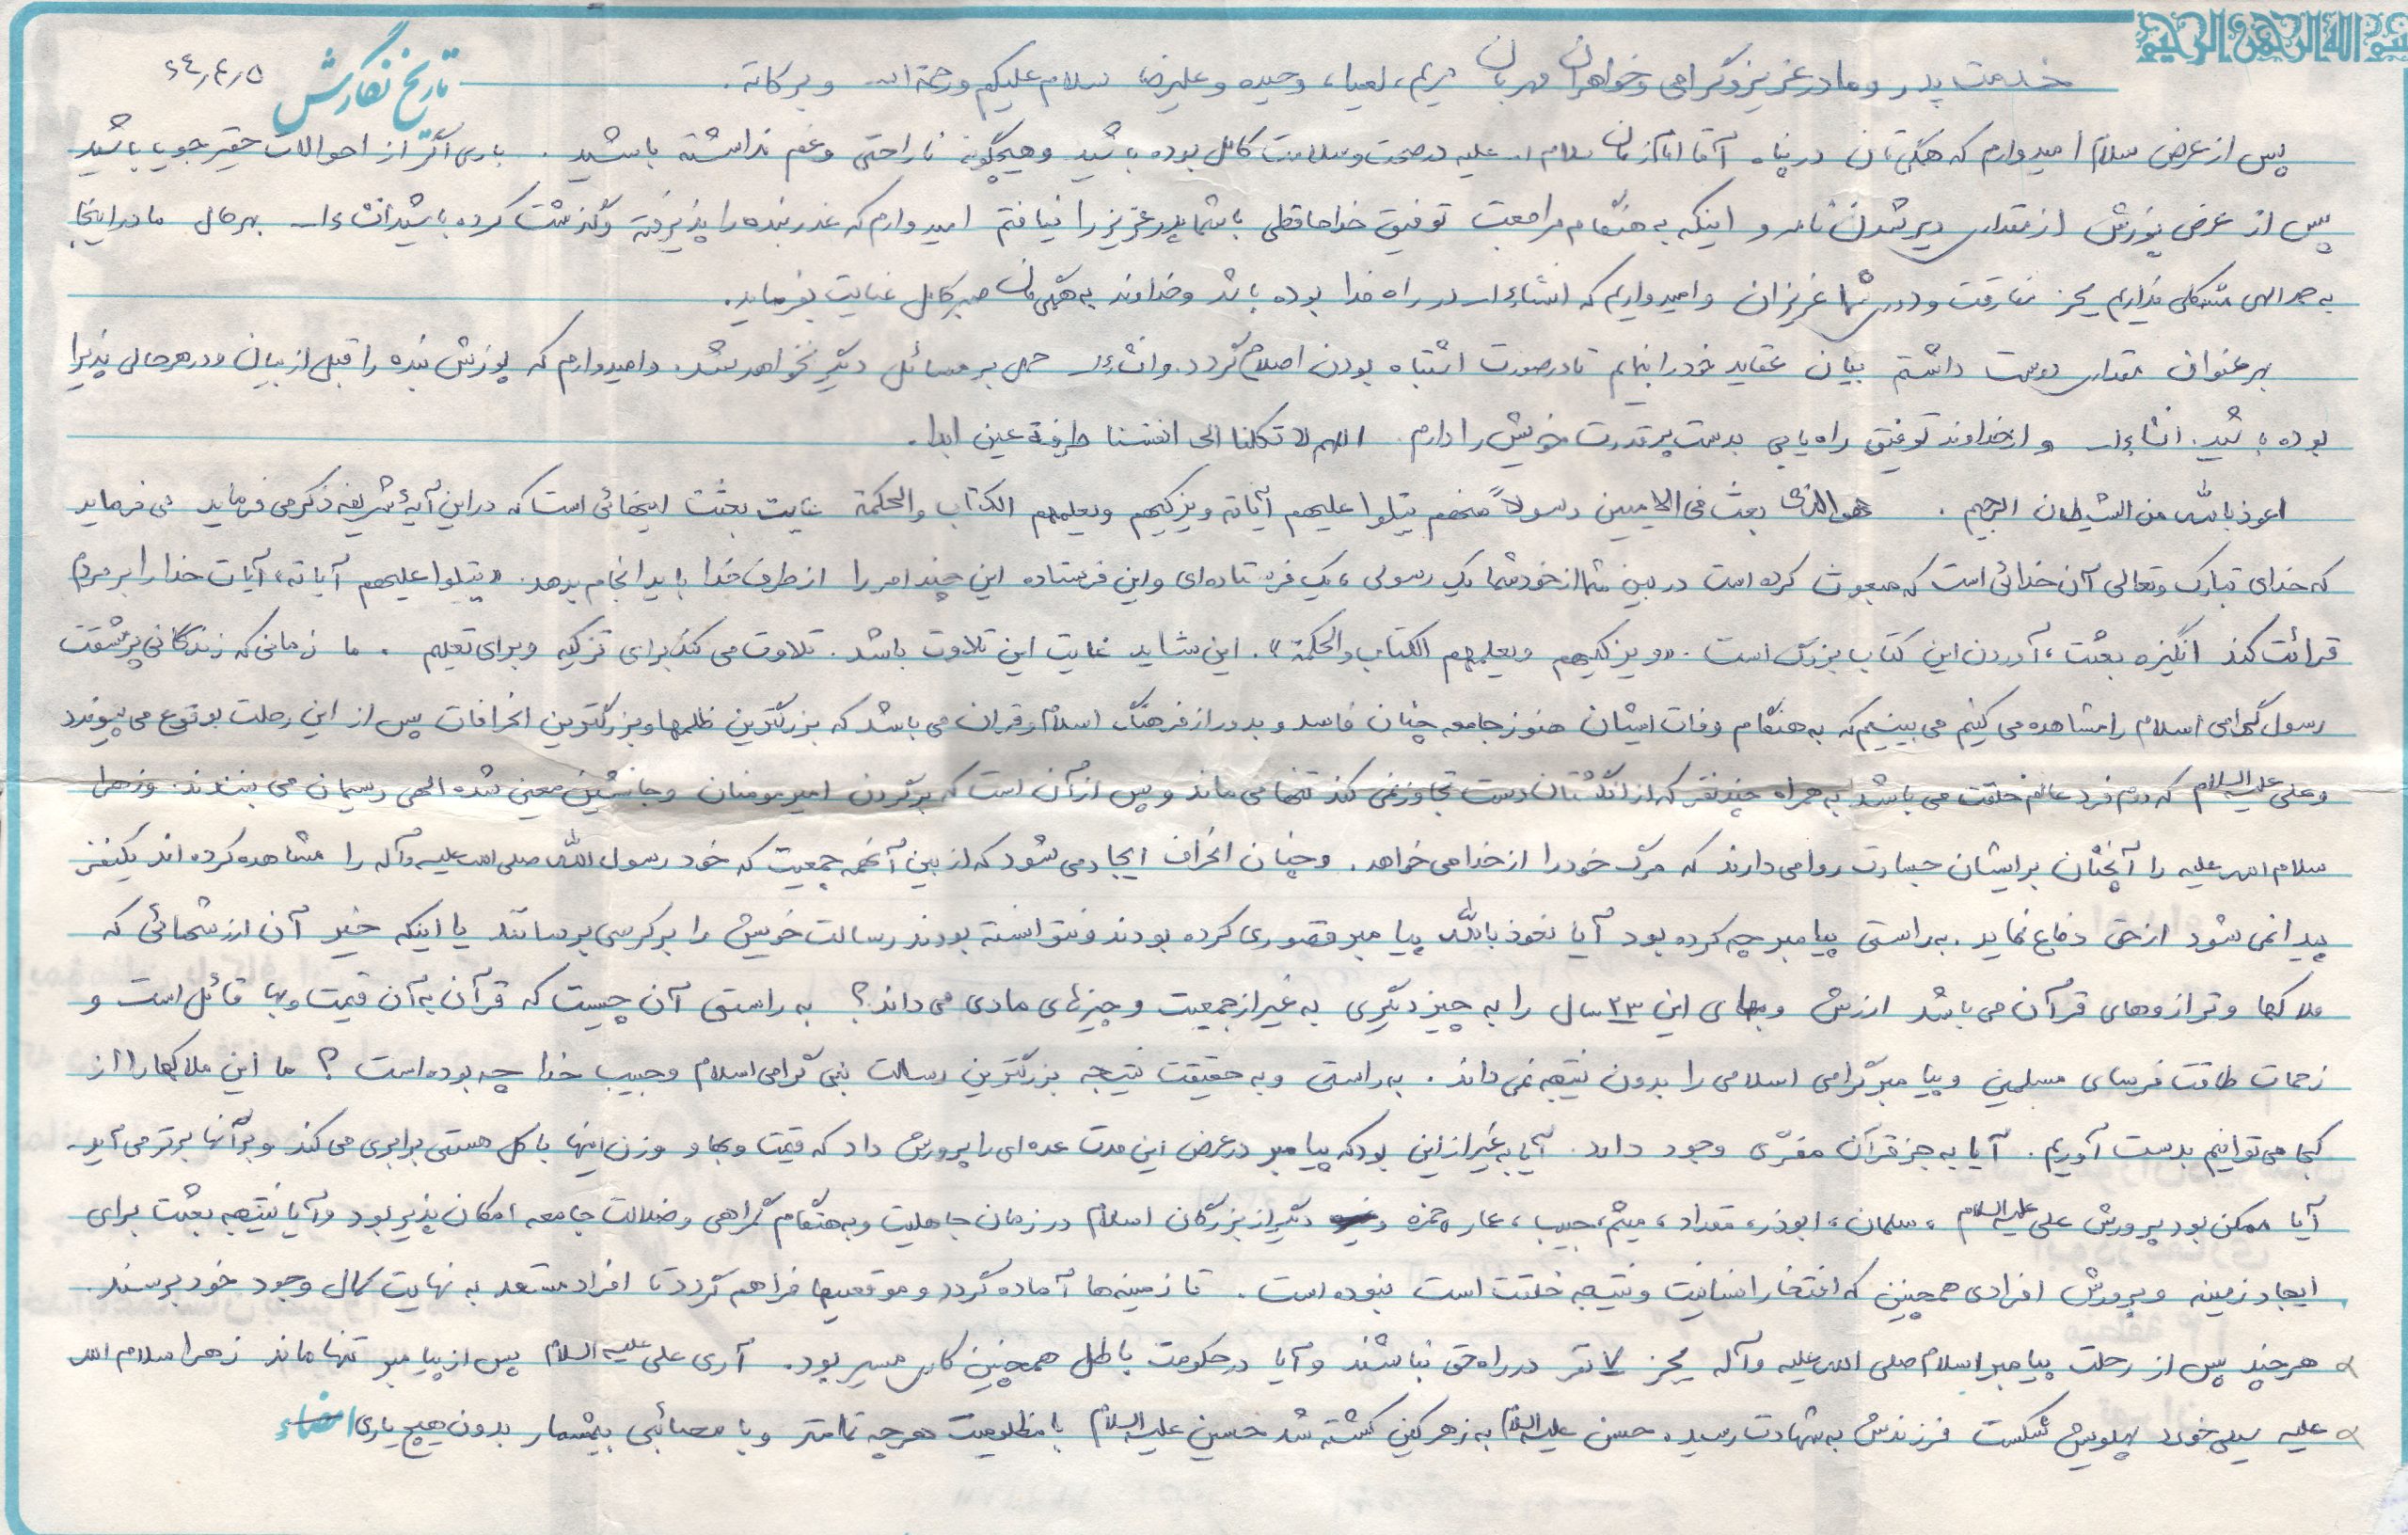 بسم الله الرحمن الرحیم
تاریخ نگارش ۶۴٫۴٫۵
خدمت پدر و مادر عزیز و گرامی و خواهران مهربان مریم، لعیا، وحیده و علیرضا سلام علیکم و رحمة الله و برکاته.
پس از عرض سلام امیدوارم که همگی‌تان در پناه آقا امام زمان سلام اله علیه در صحت و سلامت کامل بوده باشید و هیچگونه ناراحتی و غم نداشته باشید. باری اگر از احوالات حقیر جویا باشید
پس از عرض پوزش از مقداری دیر شدن نامه و اینکه به هنگام مراجعت توفیق خداحافظی با شما پدر عزیز را نیافتم امیدوارم که عذر بنده را پذیرفته و گذشت کرده باشید انشاءاله بهرحال ما در اینجا
به حمد الهی مشکلی نداریم بجز مفارقت و دوری شما عزیزان و امیدواریم که انشاءاله در راه خدا بوده باشد و خداوند به همگی‌مان صبر کامل عنایت بفرماید.
بهر عنوان مقداری دوست داشتم بیان عقاید خود را بنمایم تا در صورت اشتباه بودن اصلاح گردد. و انشاءاله حمل بر مسائل دیگر نخواهد شد. و امیدوارم که پوزش بنده را قبل از بیان و در هر حال پذیرا
بوده باشید. انشاءاله و از خداوند توفیق راه‌یابی بدست پر قدرت خویش را دارم. اللهم لا تکلنا الی انفسنا طرفة عین ابدا.
اعوذ بالله من الشیطان الرجیم. هو الذی بعث فی الامیین رسولاً منهم یتلوا علیهم آیاته و یزکیهم و یعلمهم الکتاب و الحکمة غایت بعثت اینهائی است که در این آیهٔ شریفه ذکر می فرماید می فرماید
که خدای تبارک و تعالی آن خدائی است که مبعوث کرده است در بین شما از خود شما یک رسولی، یک فرستاده‌ای و این فرستاده این چند امر را از طرف خدا باید انجام بدهد. «یتلوا علیهم آیاته» آیات خدا را بر مردم
قرائت کند انگیزه بعثت، آوردن این کتاب بزرگ است. «و یزکیهم و یعلمهم الکتاب و الحکمة». این شاید غایت این تلاوت باشد. تلاوت می کند برای تزکیه و برای تعلیم. ما زمانی که زندگانی پر مشقت
رسول گرامی اسلام را مشاهده می کنیم می بینیم که به هنگام وفات ایشان هنوز جامعه چنان فاسد و بدور از فرهنگ اسلام و قران می باشد که بزرگترین ظلمها و بزرگترین انحرافات پس از این رحلت بوقوع می پیوندد
و علی علیه السلام که دوم فرد عالم خلقت می باشد به همراه چند نفر که از انگشتان دست تجاوز نمی کند تنها می ماند و پس از آن است که بر گردن امیر مومنان و جانشین معین شده الهی ریسمان می بندند. و زهرا
سلام اله علیه را آنچنان برایشان جسارت روا می دارند که مرگ خود را از خدا می خواهد. و چنان انحراف ایجاد می شود که از بین آنهمه جمعیت که خود رسول الله صلی اله علیه و آله را مشاهده کرده اند یکنفر
پیدا نمی شود از حق دفاع نماید. به راستی پیامبر چه کرده بود آیا نعوذ بالله پیامبر قصوری کرده بودند و نتوانسته بودند رسالت خویش را بر کرسی برسانند یا اینکه خیر آن ارزشهائی که
ملاکها و ترازوهای قرآن می باشد ارزش و بهای این ۲۳ سال را به چیز دیگری به غیر از جمعیت و چیزهای مادی می داند؟ به راستی آن چیست که قرآن به آن قیمت و بها قائل است و
زحمات طاقت فرسای مسلمین و پیامبر گرامی اسلامی را بدون نتیجه نمی داند. به راستی و به حقیقت نتیجه بزرگترین رسالت نبی گرامی اسلام و حبیب خدا چه بوده است؟ ما این ملاکها را از
کجا می توانیم بدست آوریم. آیا به جز قرآن مفری وجود دارد. آیا به غیر از این بود که پیامبر در عرض این مدت عده ای را پرورش داد که قیمت و بها و وزن اینها با کل هستی برابری می کند و بر آنها برتر می آید.
آیا ممکن بود پرورش علی علیه السلام، سلمان، ابوذر، مقداد، میثم، حبیب، عمار، حمزه و دیگر از بزرگان اسلام در زمان جاهلیت و به هنگام گمراهی و ضلالت جامعه امکان پذیر بود و آیا نتیجه بعثت برای
ایجاد زمینه و پرورش افرادی همچنین که افتخار انسانیت و نتیجه خلقت است نبوده است. تا زمینه ها آماده گردد و موقعیتها فراهم گردد تا افراد مستعد به نهایت کمال وجود خود برسند.
هر چند پس از رحلت پیامبر اسلام صلی اله علیه و آله بجز ۷ نفر در راه حق نباشند و آیا در حکومت باطل همچنین کاری میسر بود. آری علی علیه السلام پس از پیامبر تنها ماند زهرا سلام اله
علیه سیلی خورد پهلویش شکست فرزندش به شهادت رسید. حسن علیه السلام به زهر کین کشته شد حسین علیه السلام با مظلومیت هر چه تمامتر و با مصائبی بیشمار بدون هیچ یاری امضاء